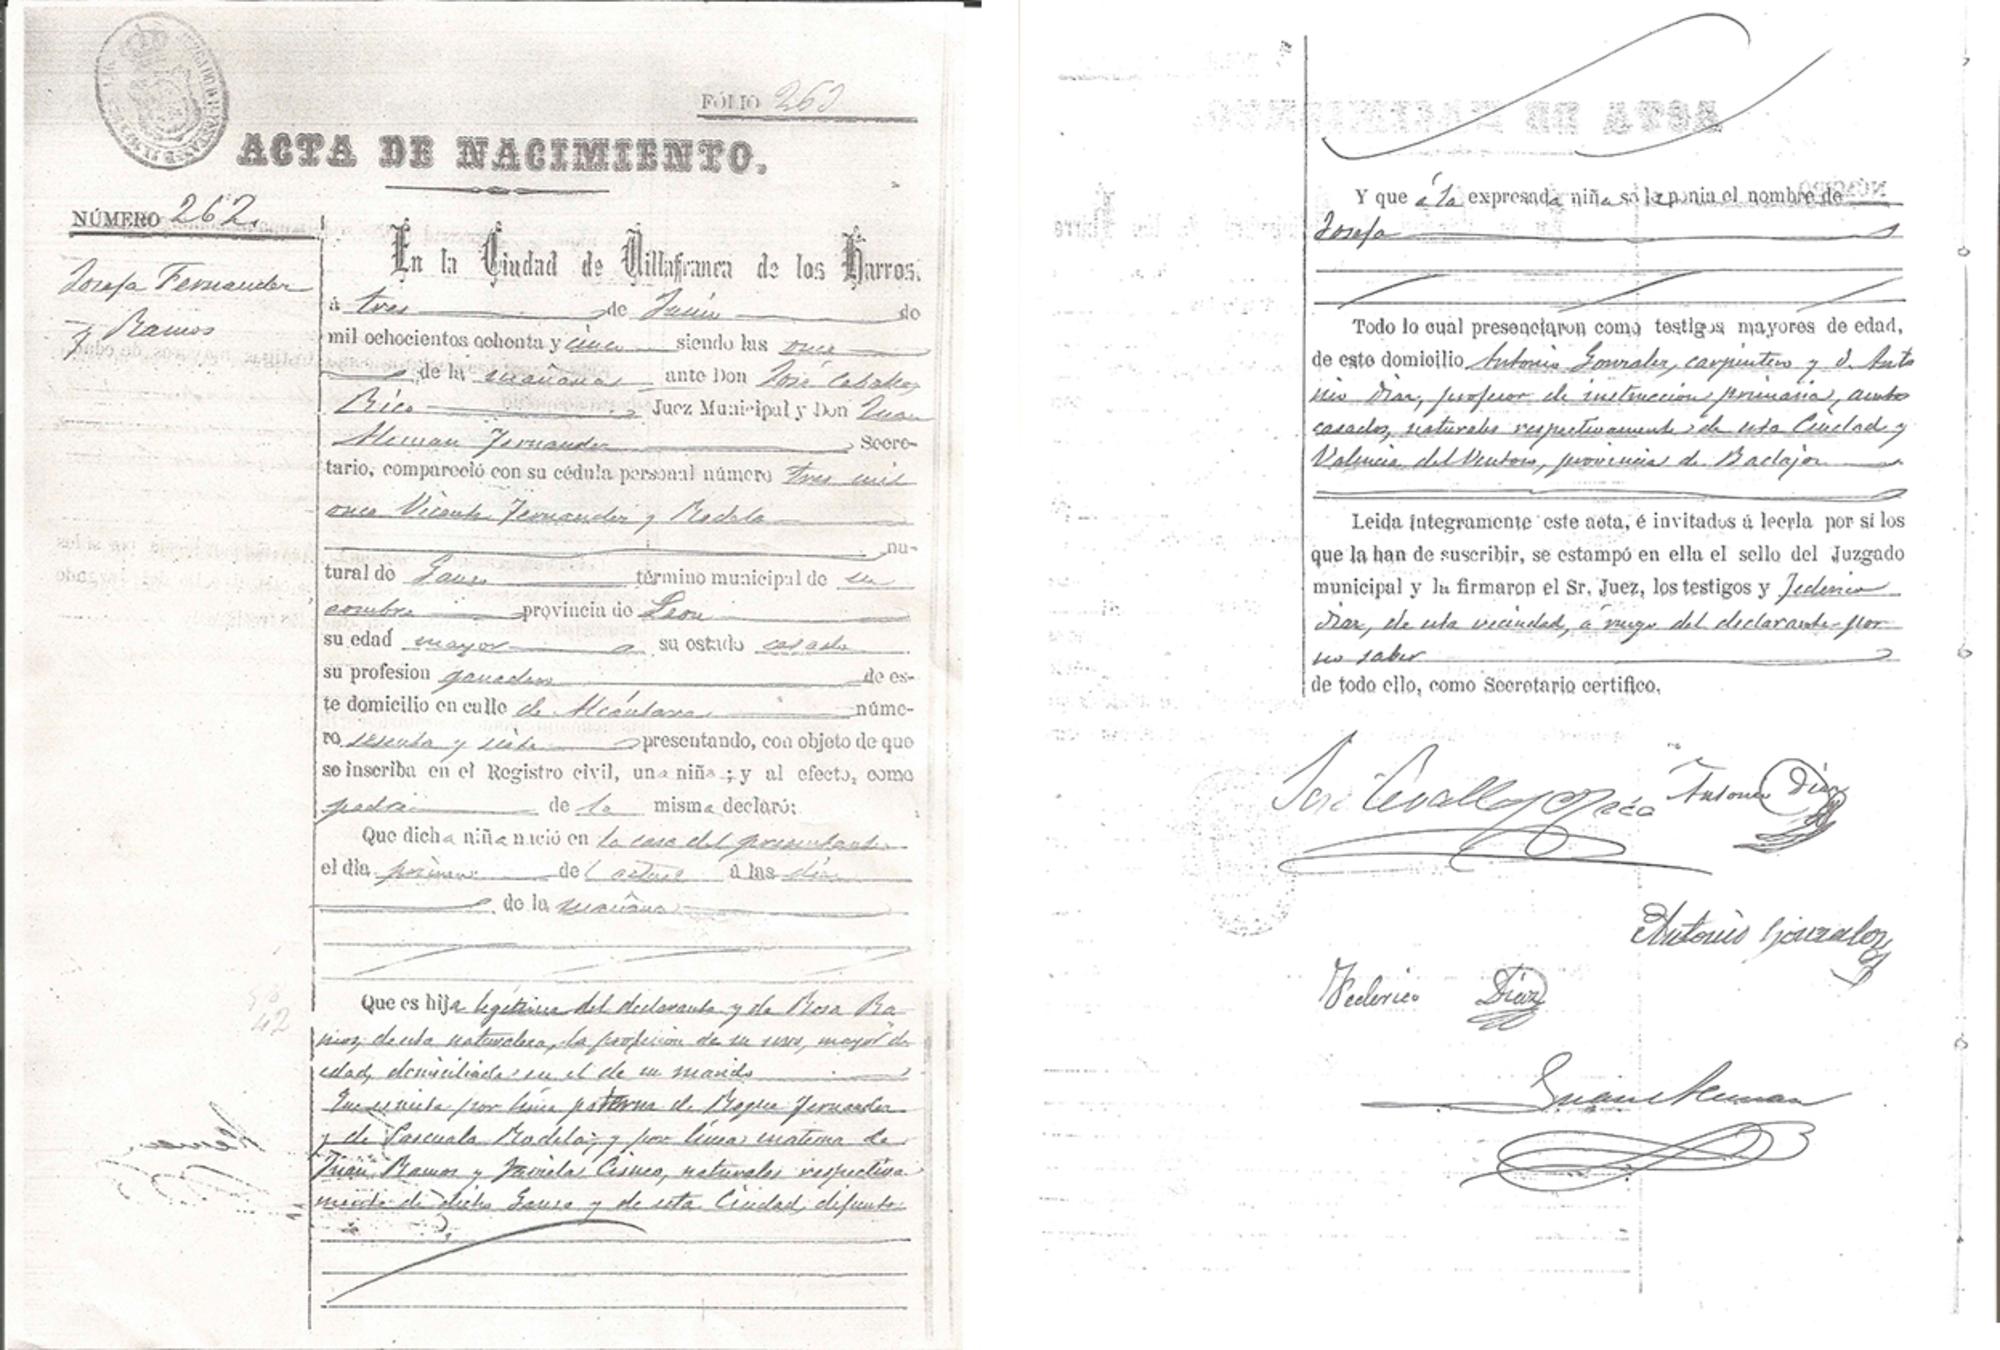 FÓLIO 263
ACTA DE NACIMIENTO.
NÚMERO 262.
Josefa Fernandez
y Ramos
En la Ciudad de Villafranca de los Barros,
á tres de Junio de
mil ochocientos ochenta y cinco siendo las once
de la mañana ante Don José Caballos
Rico Juez Municipal y Don Juan
Aleman Fernandez Secre-
tario, compareció con su cédula personal número tres mil
once Vicente Fernandez y Rodela
na-
tural de término municipal de su
nombre provincia de Leon
su edad mayor su estado casado
su profesion ganadero de es-
te domicilio en calle de Alcántara núme-
ro sesenta y siete presentando, con objeto de que
se inscriba en el Registro civil, una niña; y al efecto, como
padre de la misma declaró:
Que dicha niña nació en la casa del presentante
el dia primero del actual á las diez
de la mañana
Que es hija legítima del declarante y de Rosa Ra-
mos, de esta naturaleza, la profesion de su sexo, mayor de
edad, domiciliada en el de su marido
Que es nieta por línea paterna de Roque Fernandez
y de Pascuala Rodela; y por línea materna de
Juan Ramos y Cisneo, naturales respectiva
mente de dicho y de esta Ciudad, difuntos
Y que á la expresada niña se la ponia el nombre de
Josefa
Todo lo cual presenciaron como testigos mayores de edad,
de este domicilio Antonio Gonzalez, carpintero y D. Anto
nio Diaz, profesor de instruccion primaria, ambos
casados, naturales respectivamente de esta Ciudad y
Valencia del Ventoso, provincia de Badajoz
Leida íntegramente este acta, é invitados á leerla por sí los
que la han de suscribir, se estampó en ella el sello del Juzgado
municipal y la firmaron el Sr. Juez, los testigos y Federico
Diaz, de esta vecindad, á ruego del declarante por
no saber
de todo ello, como Secretario certifico.
José Cevallos Rico
Antonio Diaz
Antonio Gonzalez
Federico Diaz
Juan Aleman